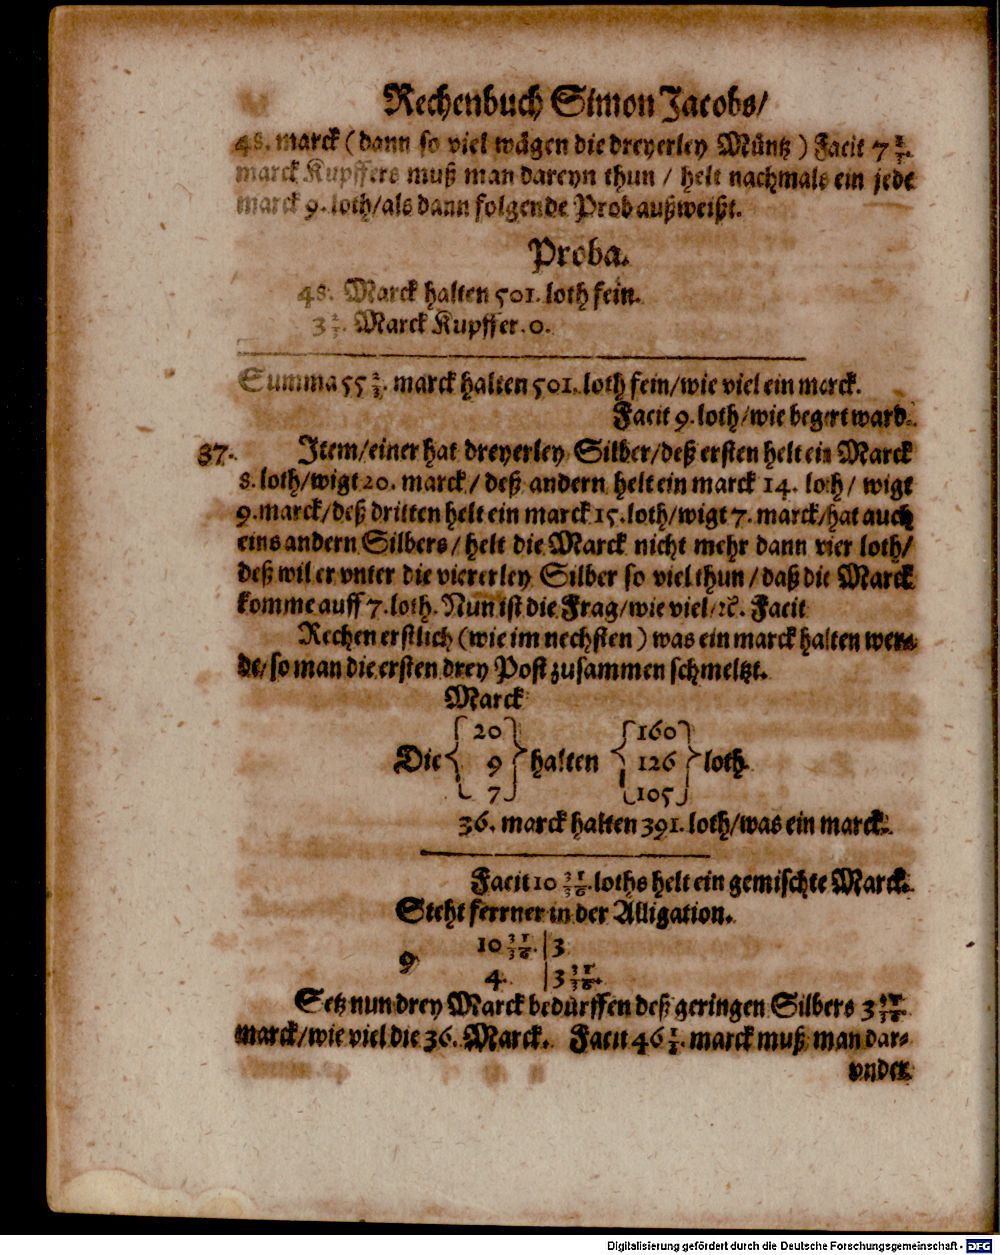 Rechenbuch Simon Jacobs/
48. marck (dann so viel wägen die dreyerley Müntz) Facit 7 2/3.
marck Kupffers muß man dareyn thun / helt nachmals ein jede
marck 9. loth/als dann folgende Prob außweißt.
Proba.
48. Marck halten 501. loth fein.
Marck Kupffer. 0.
Summa 55 2/3. marck halten 501. loth fein/wie viel ein marck.
Facit 9. loth/wie begert ward.
37. Item/einer hat dreyerley Silber/deß ersten helt ein Marck
8. loth/wigt 20. marck/ deß andern helt ein marck 14. loth/ wigt
9. marck/deß dritten helt ein marck 15. loth/wigt 7. marck/hat auch
eins andern Silbers/ helt die Marck nicht mehr dann vier loth/
deß wil er vnter die viererley Silber so viel thun / daß die Marck
komme auff 7. loth. Nun ist die Frag/wie viel/ꝛc. Facit
Rechen erstlich (wie im nechsten) was ein marck halten wer-
de/so man die ersten drey Post zusammen schmeltzt.
Marck
20 160
Die 9 halten 126 loth.
7 105
36. marck halten 391. loth/was ein marck.
Facit 10 31/36. loths helt ein gemischte Marck.
Steht ferrner in der Alligation.
10 31/36. | 3
9.
4. | 3 31/36.
Setz nun drey Marck bedürffen deß geringen Silbers 3 31/36.
marck/wie viel die 36. Marck. Facit 46 1/3. marck muß man dar-
vnder
Digitalisierung gefördert durch die Deutsche Forschungsgemeinschaft - DFG